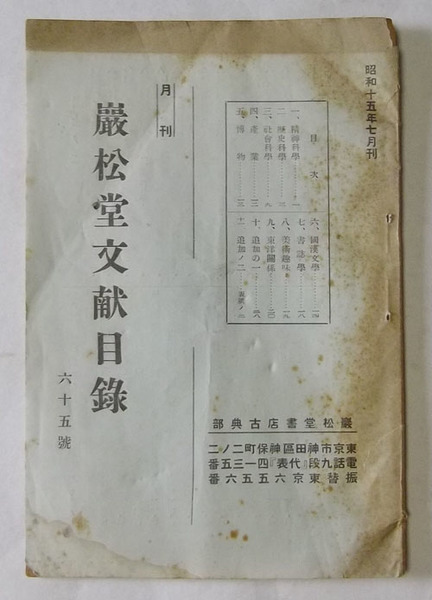 昭和十五年七月刊
目次
一、精神科學
二、歷史科學
三、社會科學
四、產業
五、博物
六、國漢文學
七、書誌學
八、美術趣味
九、東洋關係
十、追加の一
十一、追加ノ二
月刊
巖松堂文献目錄
六十五號
巖松堂書店古典部
東京市神田區神保町二ノ二
電話九段代表四一三五番
振替東京六五五六番